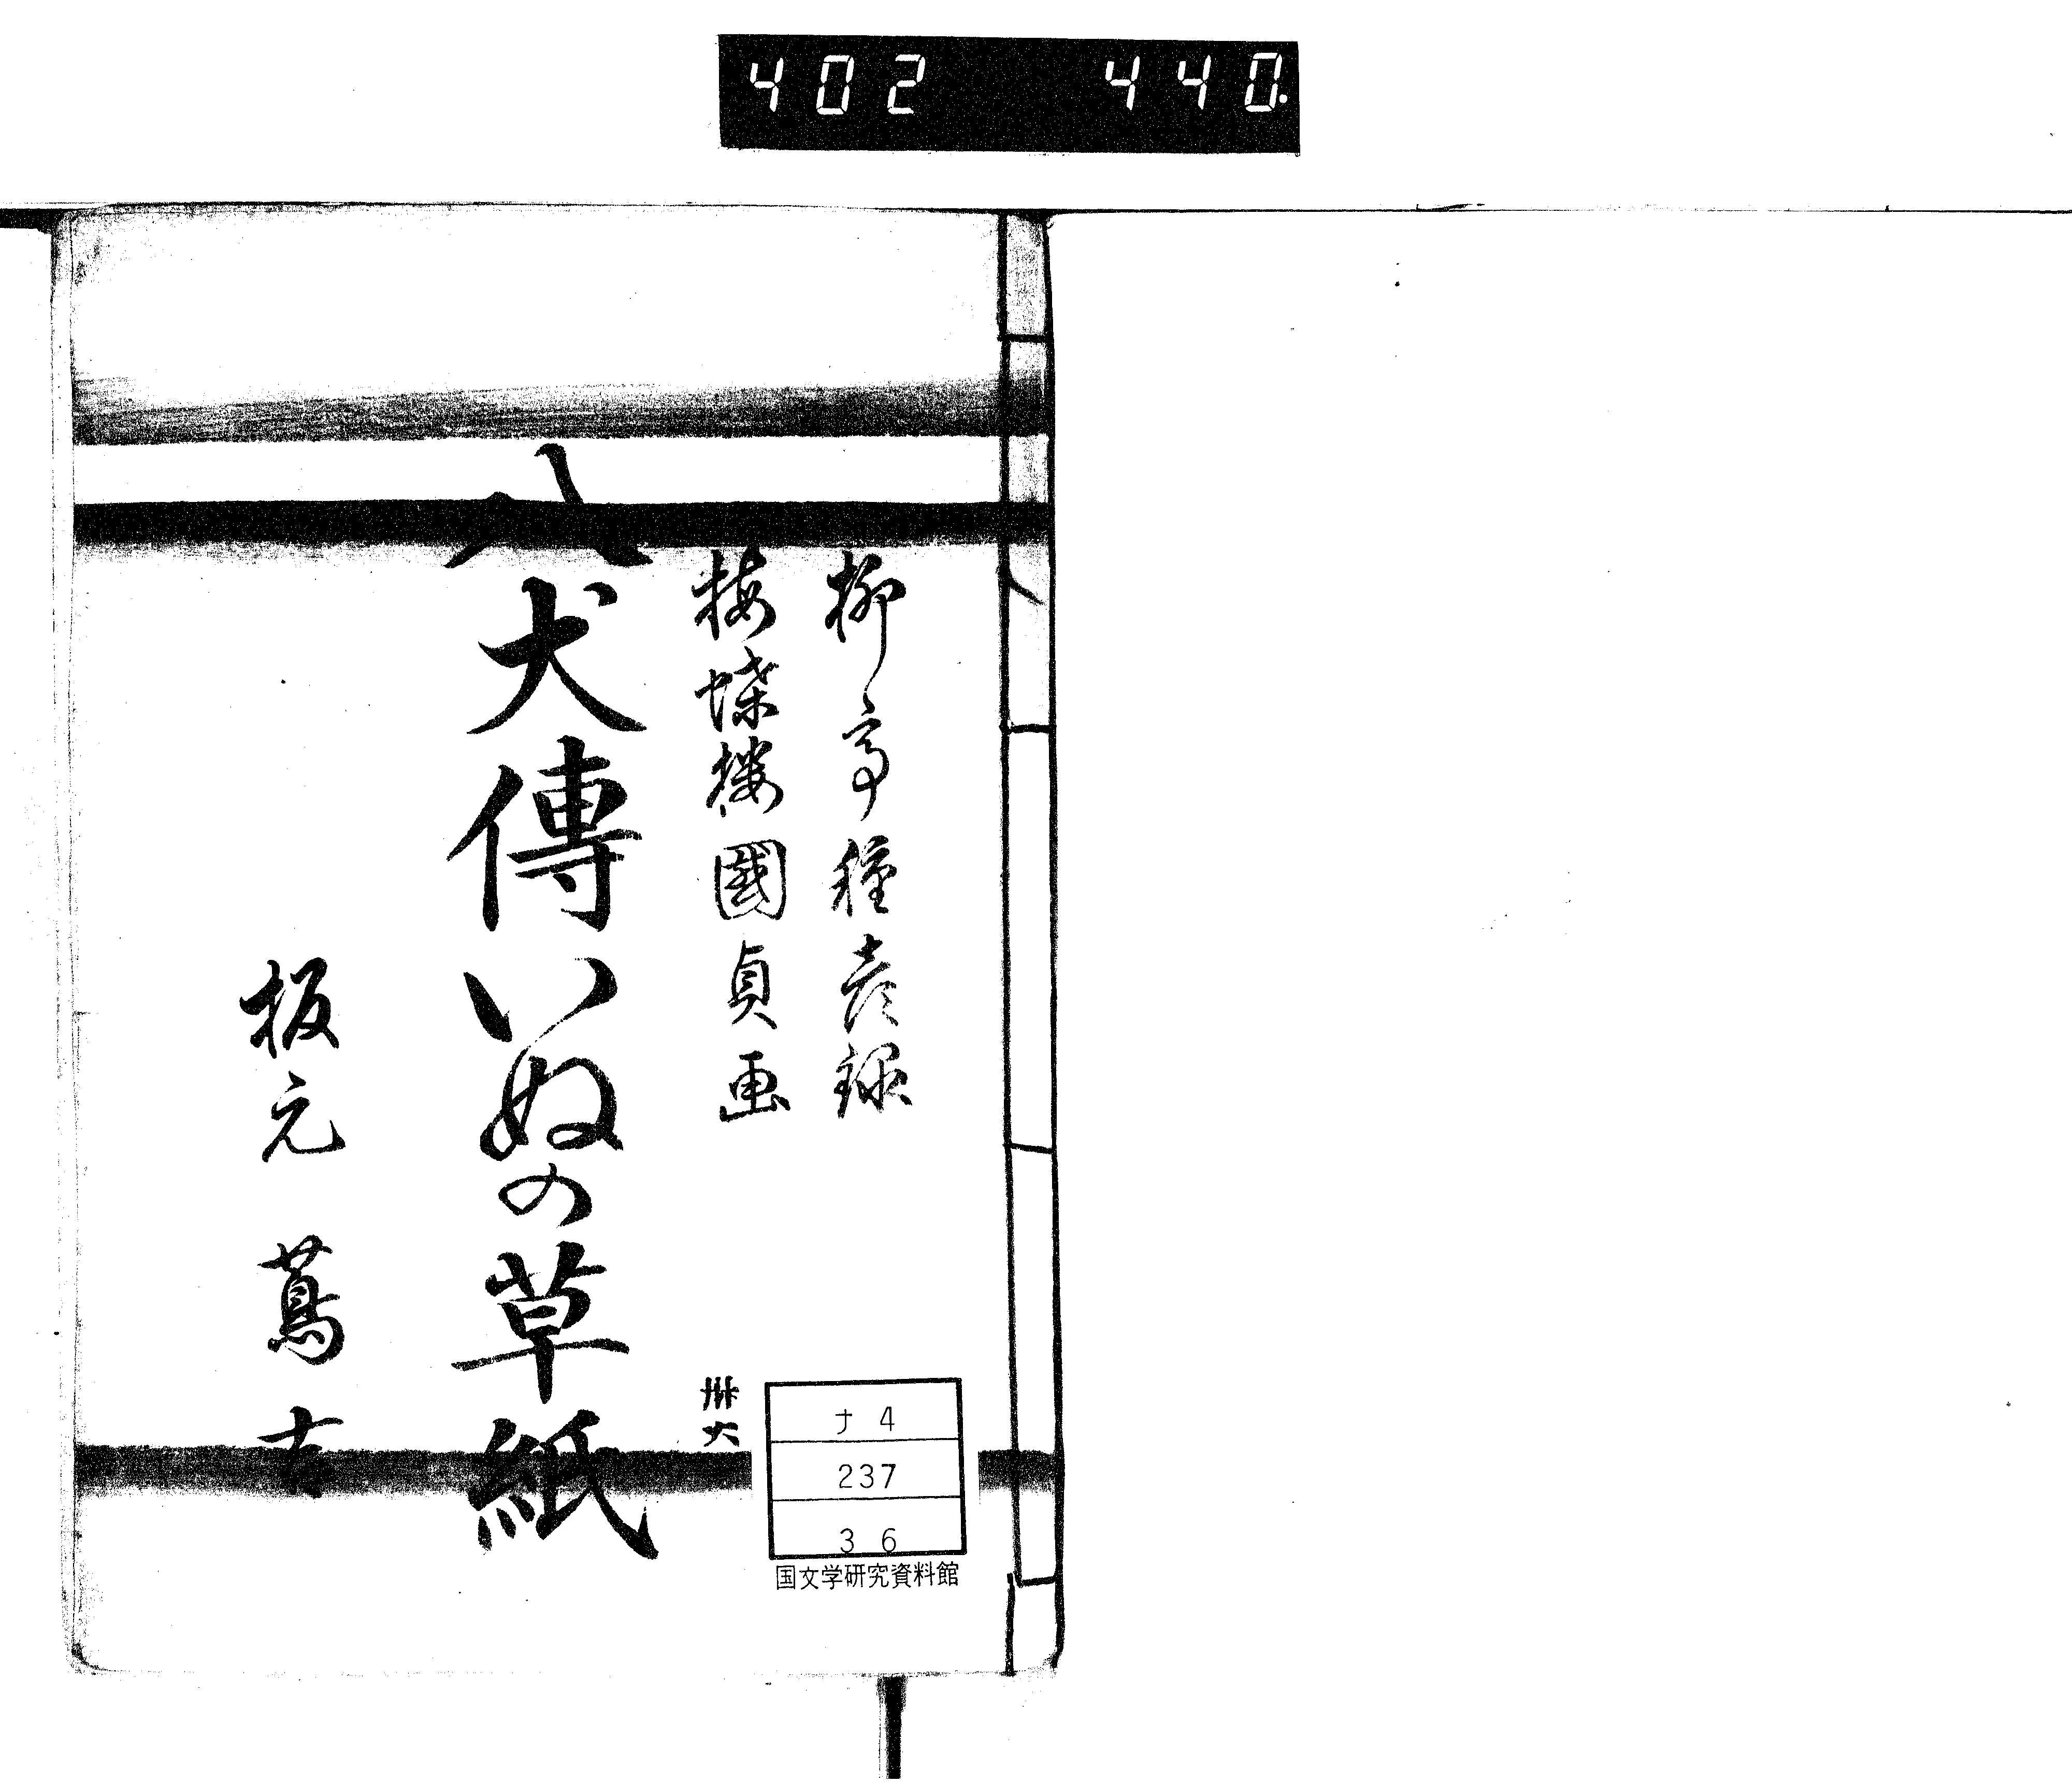 402 440.
柳亭種彦録
梅蝶楼國貞画
八犬傳いぬの草紙
板元 蔦吉
卅六
ナ 4
237
3 6
国文学研究資料館